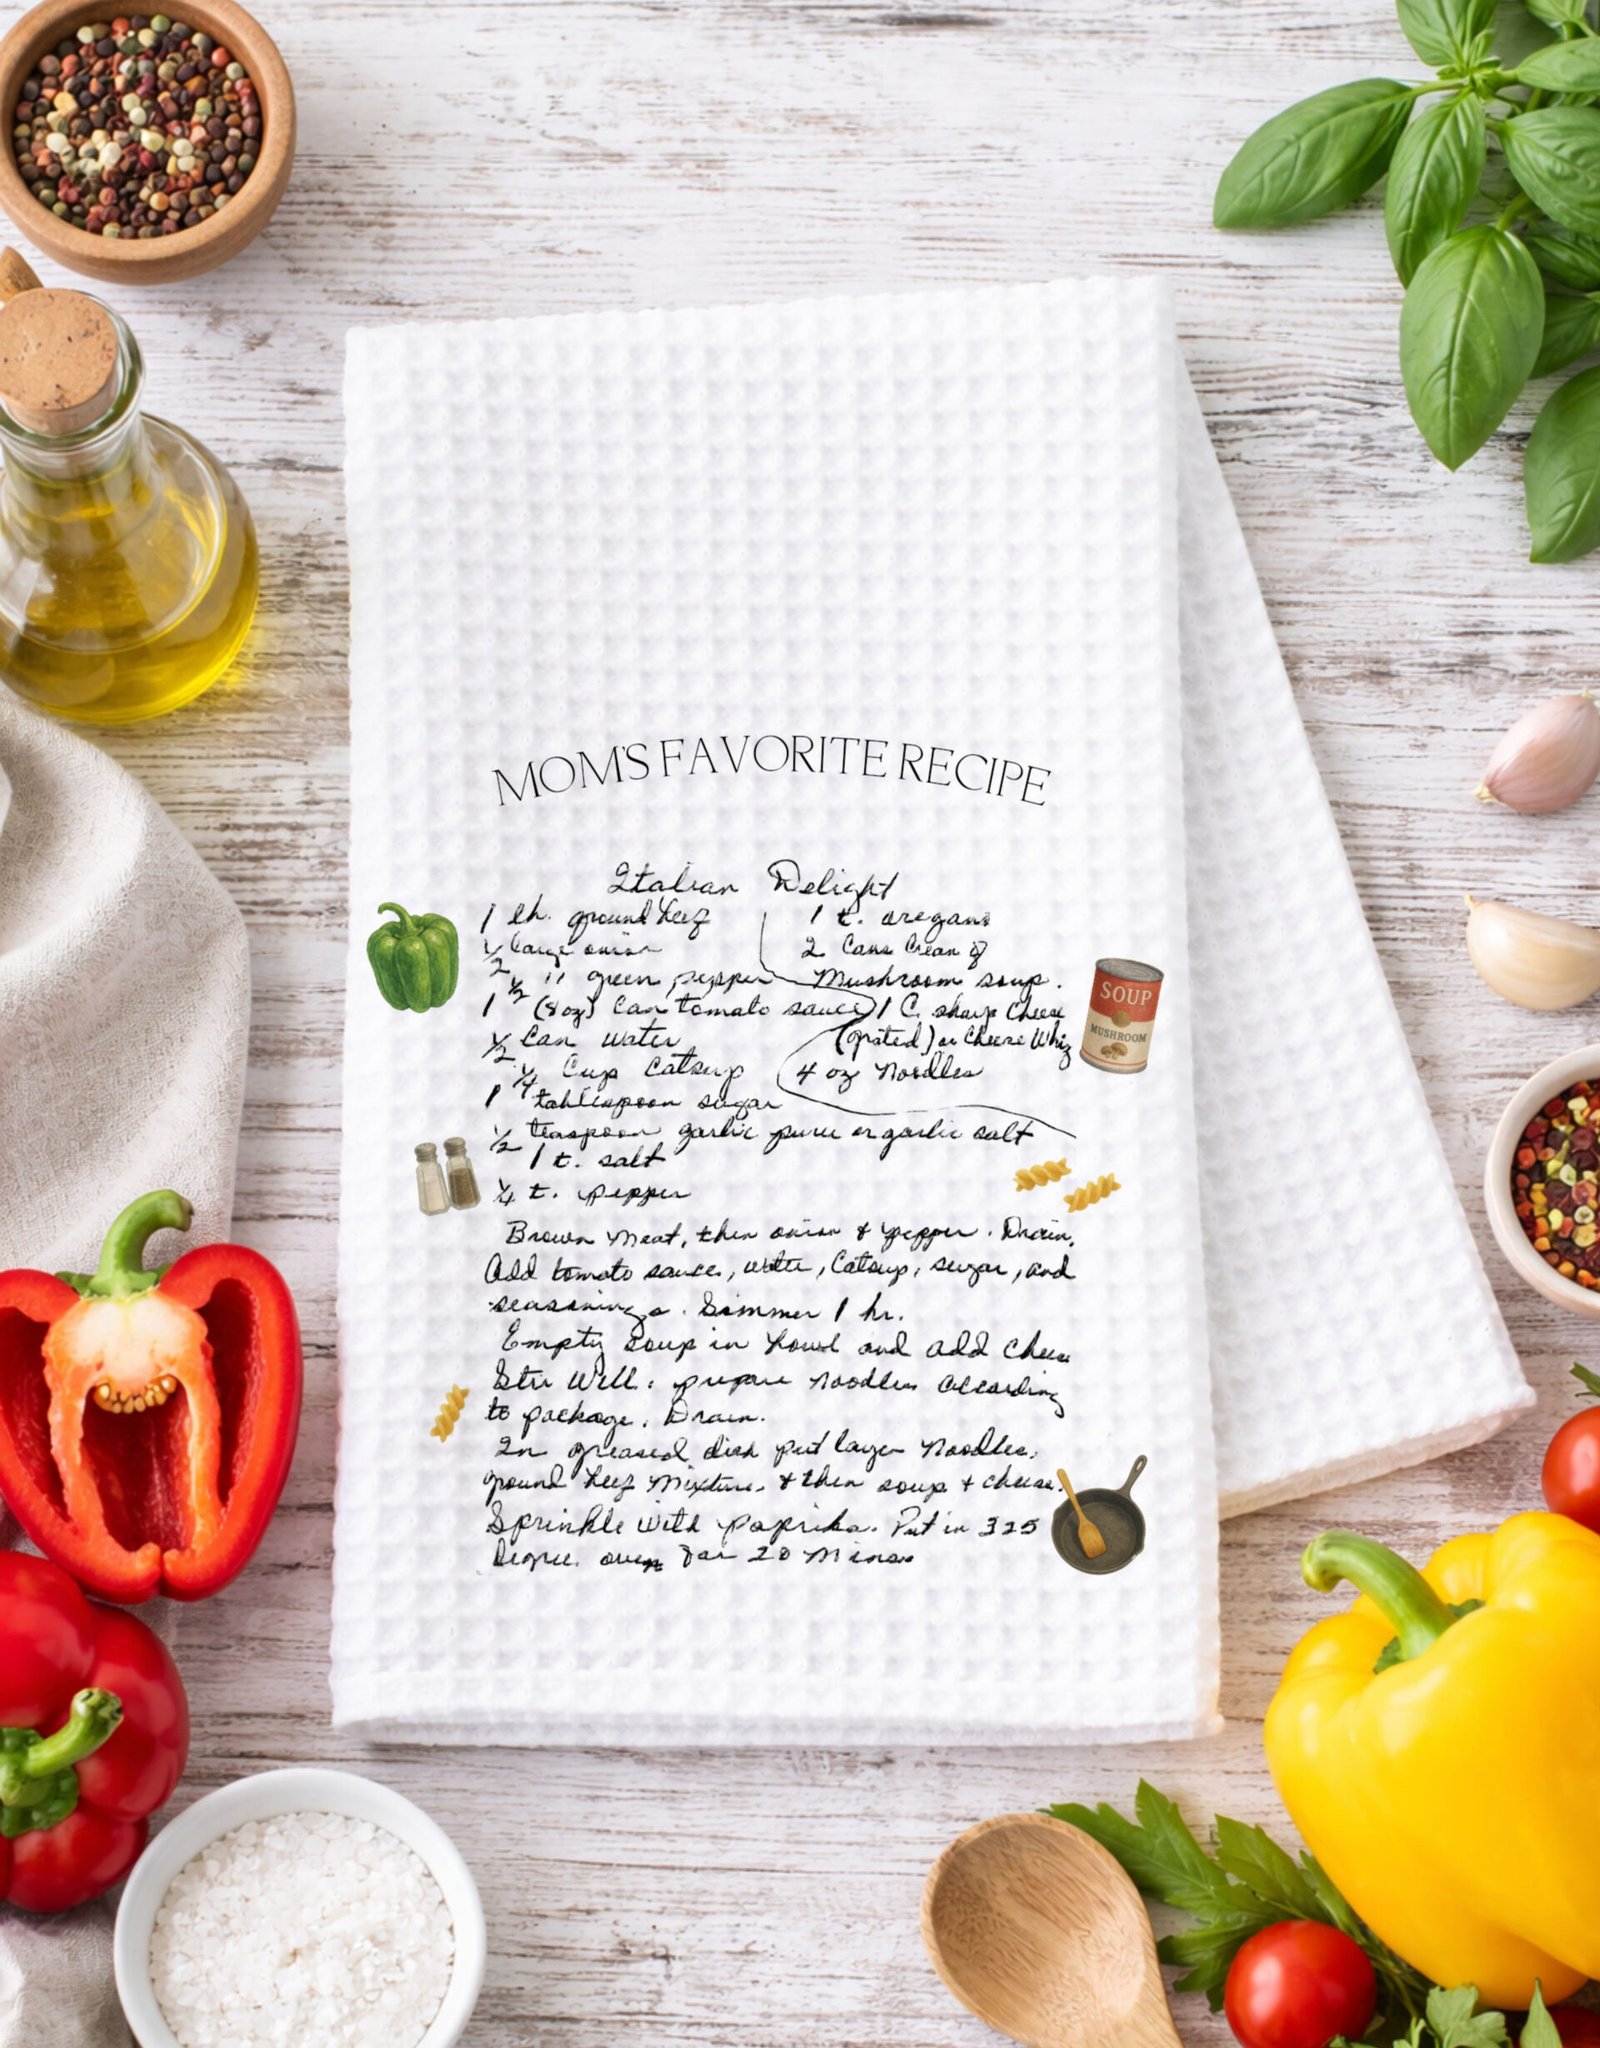 MOM'S FAVORITE RECIPE
Italian Delight
1 lb. ground beef
1/2 large onion
1/2 " green pepper
1 (8 oz) Can tomato sauce
1/2 Can water
1/4 Cup Catsup
1 tablespoon sugar
1/2 teaspoon garlic puree or garlic salt
1 t. salt
1/4 t. pepper
1 t. oregano
2 Cans Cream of
Mushroom soup.
1 C. sharp Cheese
(grated) or Cheese Whiz
4 oz Noodles
SOUP
MUSHROOM
Brown Meat, then onion & pepper. Drain.
Add tomato sauce, water, Catsup, sugar, and
seasonings. Simmer 1 hr.
Empty soup in bowl and add Cheese
Stir Well. prepare Noodles according
to package. Drain.
In greased dish put layer Noodles,
ground beef Mixture, & then soup & cheese.
Sprinkle with paprika. Put in 325
degree oven for 20 Mins